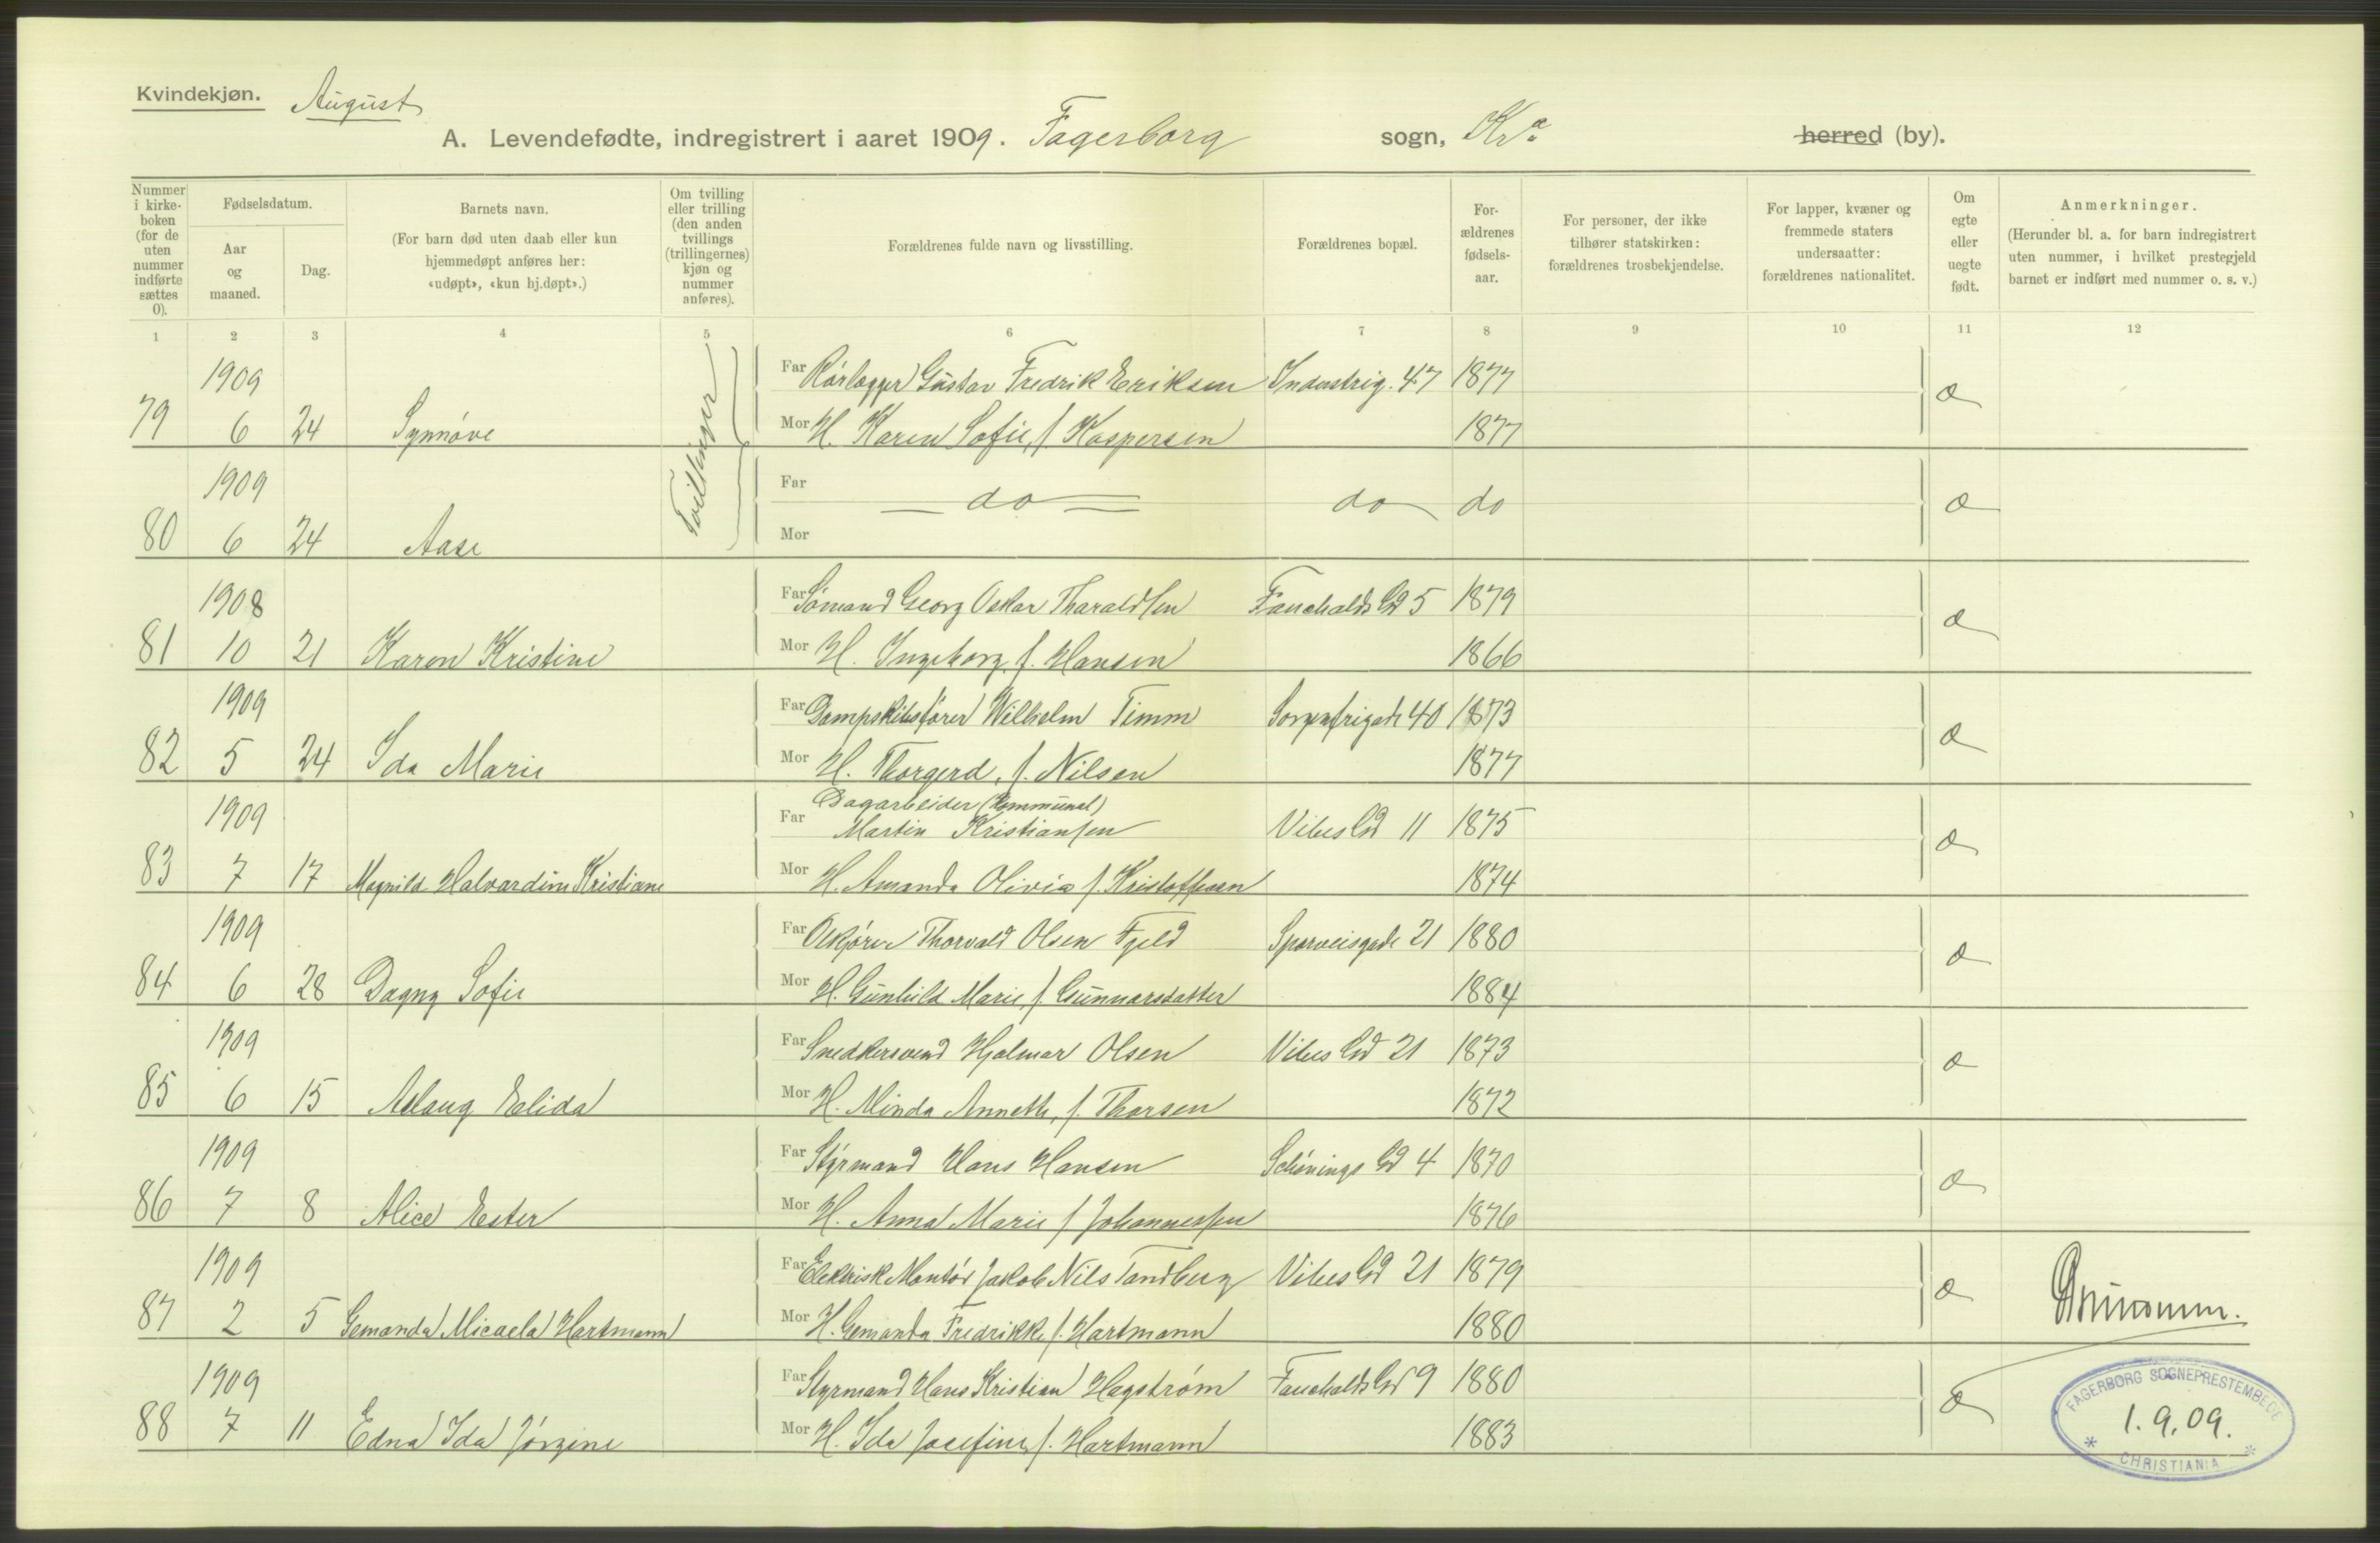 Kvindekjøn. August
A. Levendefødte, indregistrert i aaret 1909. Fagerborg sogn, Kra herred (by).
Nummer i kirkeboken (for de uten nummer indførte sættes 0).
Fødselsdatum.
Aar og maaned.
Dag.
Barnets navn.
(For barn død uten daab eller kun hjemmedøpt anføres her: «udøpt», «kun hj.døpt».)
Om tvilling eller trilling (den anden tvillings (trillingernes) kjøn og nummer anføres).
Forældrenes fulde navn og livsstilling.
Forældrenes bopæl.
Forældrenes fødselsaar.
For personer, der ikke tilhører statskirken: forældrenes trosbekjendelse.
For lapper, kvæner og fremmede staters undersaatter: forældrenes nationalitet.
Om egte eller uegte født.
Anmerkninger.
(Herunder bl. a. for barn indregistrert uten nummer, i hvilket prestegjeld barnet er indført med nummer o. s. v.)
1 2 3 4 5 6 7 8 9 10 11 12
1909 Far Rørlægger Gustav Fredrik Eriksen Industrig. 47 1877 æ
79 6 24 Synnøve Tvillinger Mor H. Karen Sofie, f. Kaspersen 1877
1909 Far do do do æ
80 6 24 Aase Mor
1908 Far Sømand Georg Oskar Tharaldsen Fauchalds Gd 5 1879 æ
81 10 21 Karen Kristine Mor H. Ingeborg, f. Hansen 1866
1909 Far Dampskibsfører Wilhelm Timm Sorgenfrigade 40 1873 æ
82 5 24 Ida Marie Mor H. Thorgerd, f. Nilsen 1877
Dagarbeider (kommunal)
1909 Far Martin Kristiansen Vibes Gd 11 1875 æ
83 7 17 Magnild Halvardine Kristiane Mor H. Amanda Olivia f. Kristoffersen 1874
1909 Far Thorvald Olsen Fjeld Sporveisgade 21 1880 æ
84 6 28 Dagny Sofie Mor H. Gunhild Marie, f. Gunnarsdatter 1884
1909 Far Snedkersvend Hjalmar Olsen Vibes Gd 21 1873 æ
85 6 15 Aslaug Elida Mor H. Minda Annette, f. Thorsen 1872
1909 Far Styrmand Hans Hansen Schønings Gd 4 1870 æ
86 7 8 Alice Ester Mor H. Anna Marie f Johannessen 1876
1909 Far Elektrisk Montør Jakob Nils Tandberg Vibes Gd 21 1879 æ
87 2 5 Gemanda Micaela Hartmann Mor H. Gemanda Fredrikke f. Hartmann 1880
1909 Far Styrmand Hans Kristian Hagstrøm Fauchalds Gd 9 1880 æ
88 7 11 Edna Ida Jørgine Mor H. Ida Josefine, f. Hartmann 1883
FAGERBORG SOGNEPRESTEMBEDE
1.9.09.
* CHRISTIANIA *